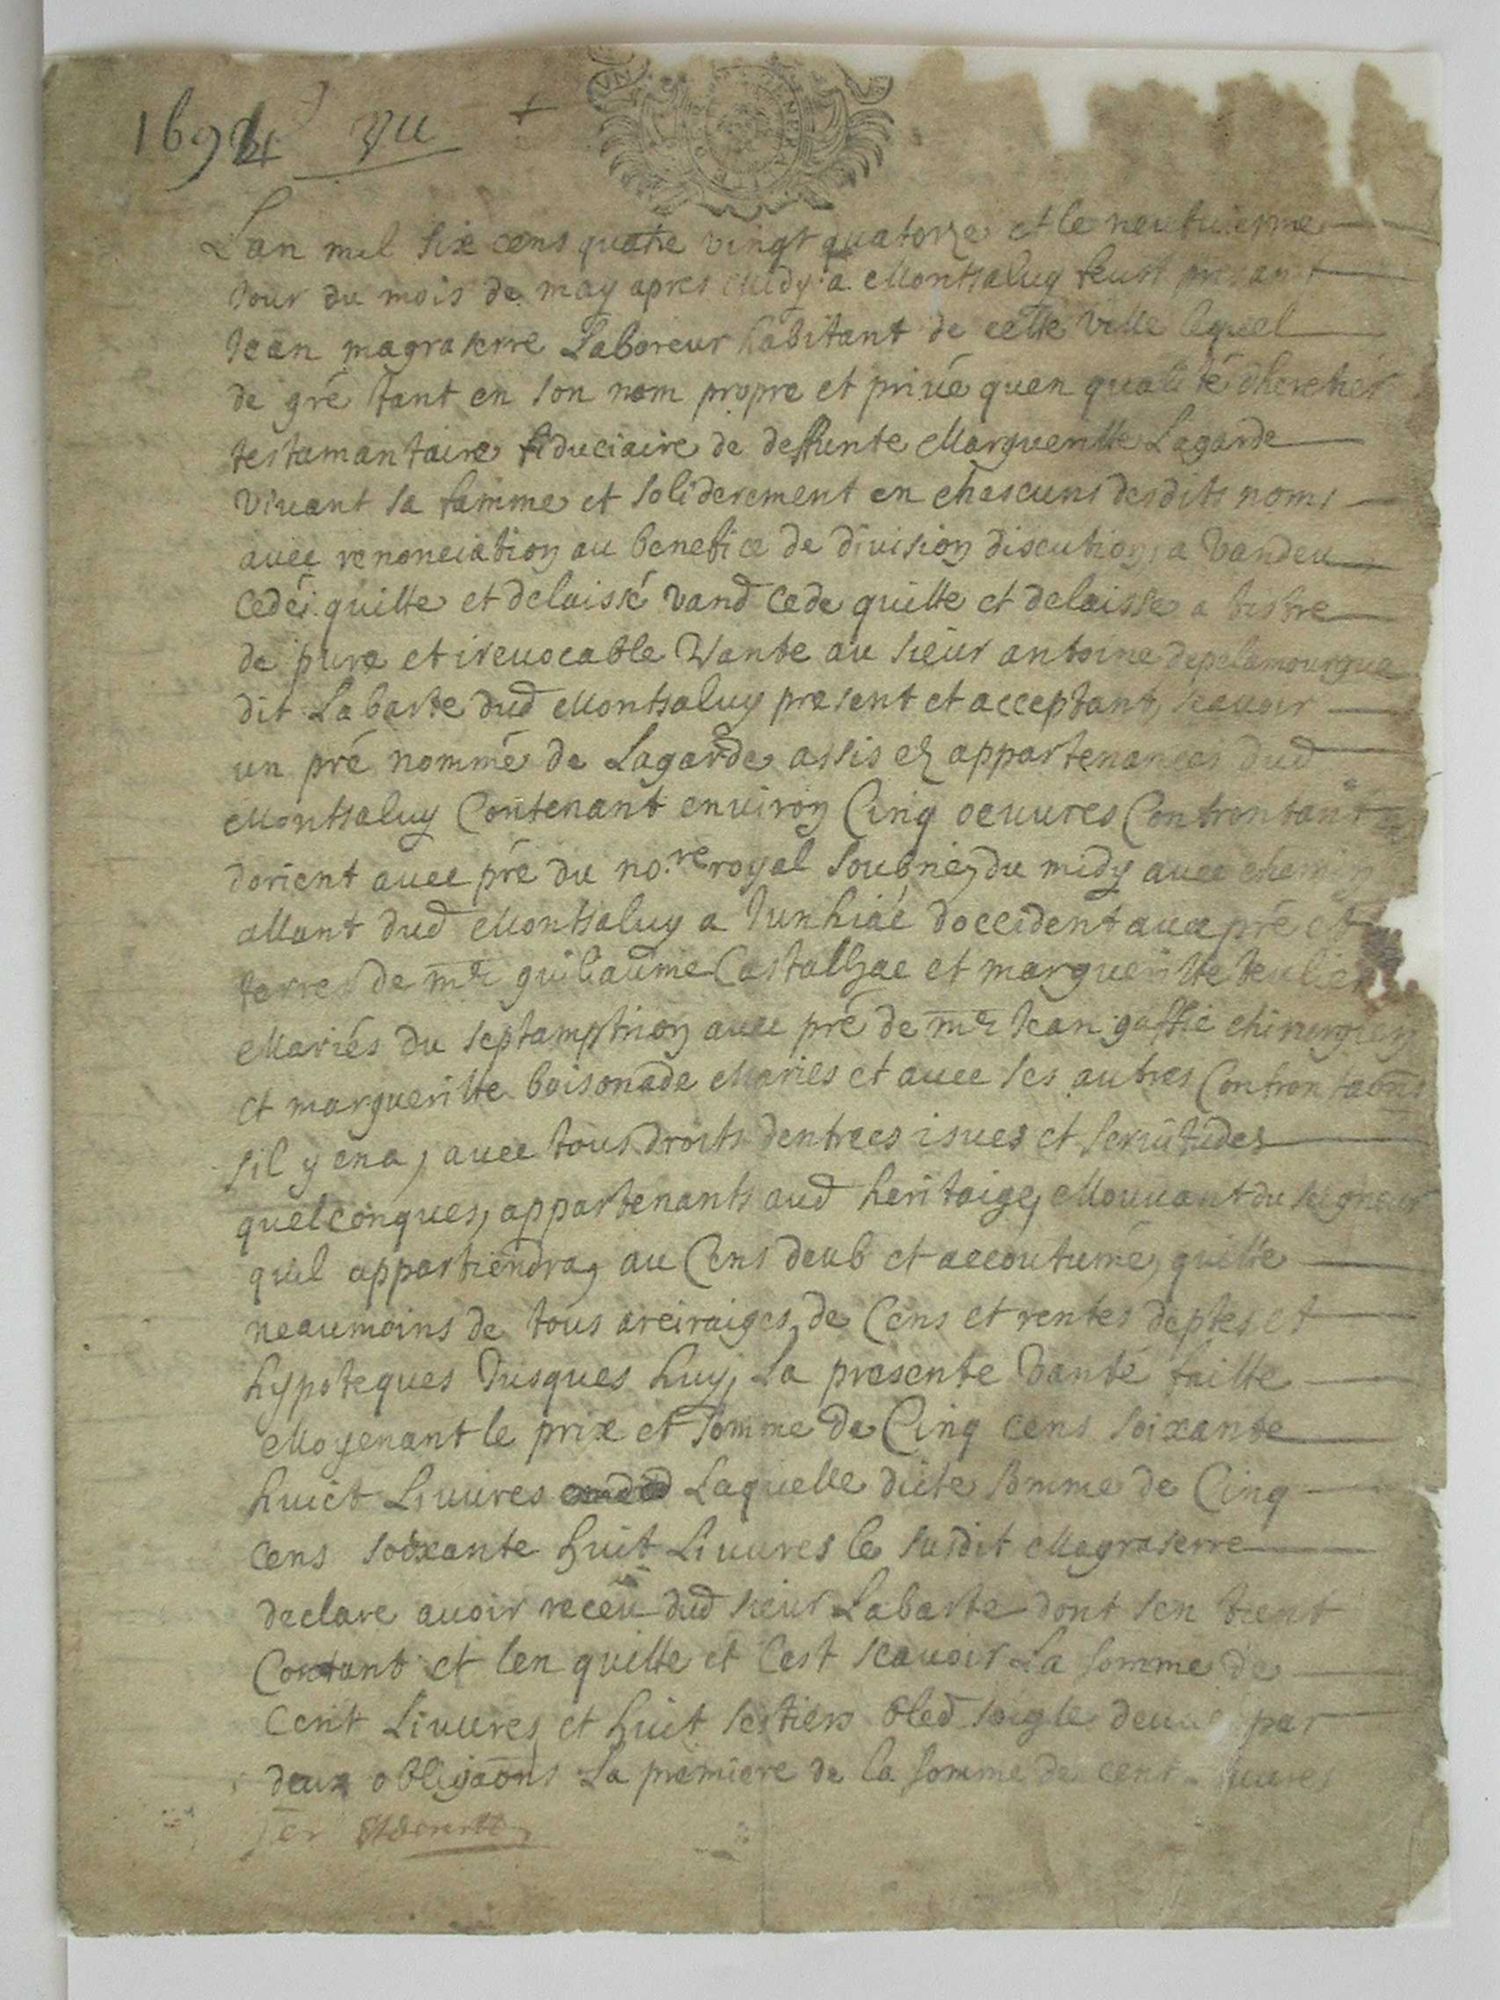 1694 vu
Lan mil six cens quatre vingt quatorze et le neufuieme
Jour du mois de may apres Midy a Montsaluy feust presant
Jean magraserre Laboreur habitant de cette ville lequel
de gré tant en son nom propre et privé quen qualité dheretier
testamantaire fiduciaire de deffunte Margueritte Lagarde
vivant sa famme et soliderement en chescuns desdits noms
avec renonciation au benefice de division discution, a vandeu
cedé quitte et delaissé vand cede quitte et delaisse a tistre
de pure et irevocable Vante au sieur antoine depelamourgua
dit Labarte dud Montsaluy present et acceptant, scavoir
un pré nommé de Lagarde assis ez appartenances dud
Montsaluy Contenant environ Cinq oeuvres Confrontant
dorient avec pré du no.re royal Soubrie, du midy avec chemin
allant dud Montsaluy a Junhiac doccident avec pré et
terres de mr guilaume Castalhac et margueritte teulier
Mariés du septamptrion avec pré de mr Jean gaffie chirurgien
et margueritte boisonade Maries et avec ses autres Confrontaons
sil y en a, avec tous droits dentrees isues et servitudes
quelconques, appartenants aud heritaige, Mouvant du seigneur
quil appartiendra, au Cens deub et accoutumé, quitte
neaumoins de tous areiraiges de Cens et rentes deptes et
hypoteques Jusques huy, La presente Vante faitte
Moyenant le prix et somme de Cinq cens soixante
huict Livvres Laquelle dicte somme de Cinq
cens soixante huit Livvres le susdit Magraserre
declare avoir receu dud sieur Labarte dont sen tient
Contant et len quitte et Cest scavoir La somme de
Cent Livvres et huit sestiers bled soigle deues par
deux obligaons La premiere de la somme de cent livvres